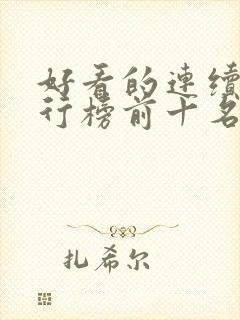 好看的連續
行榜前十名
扎希尔